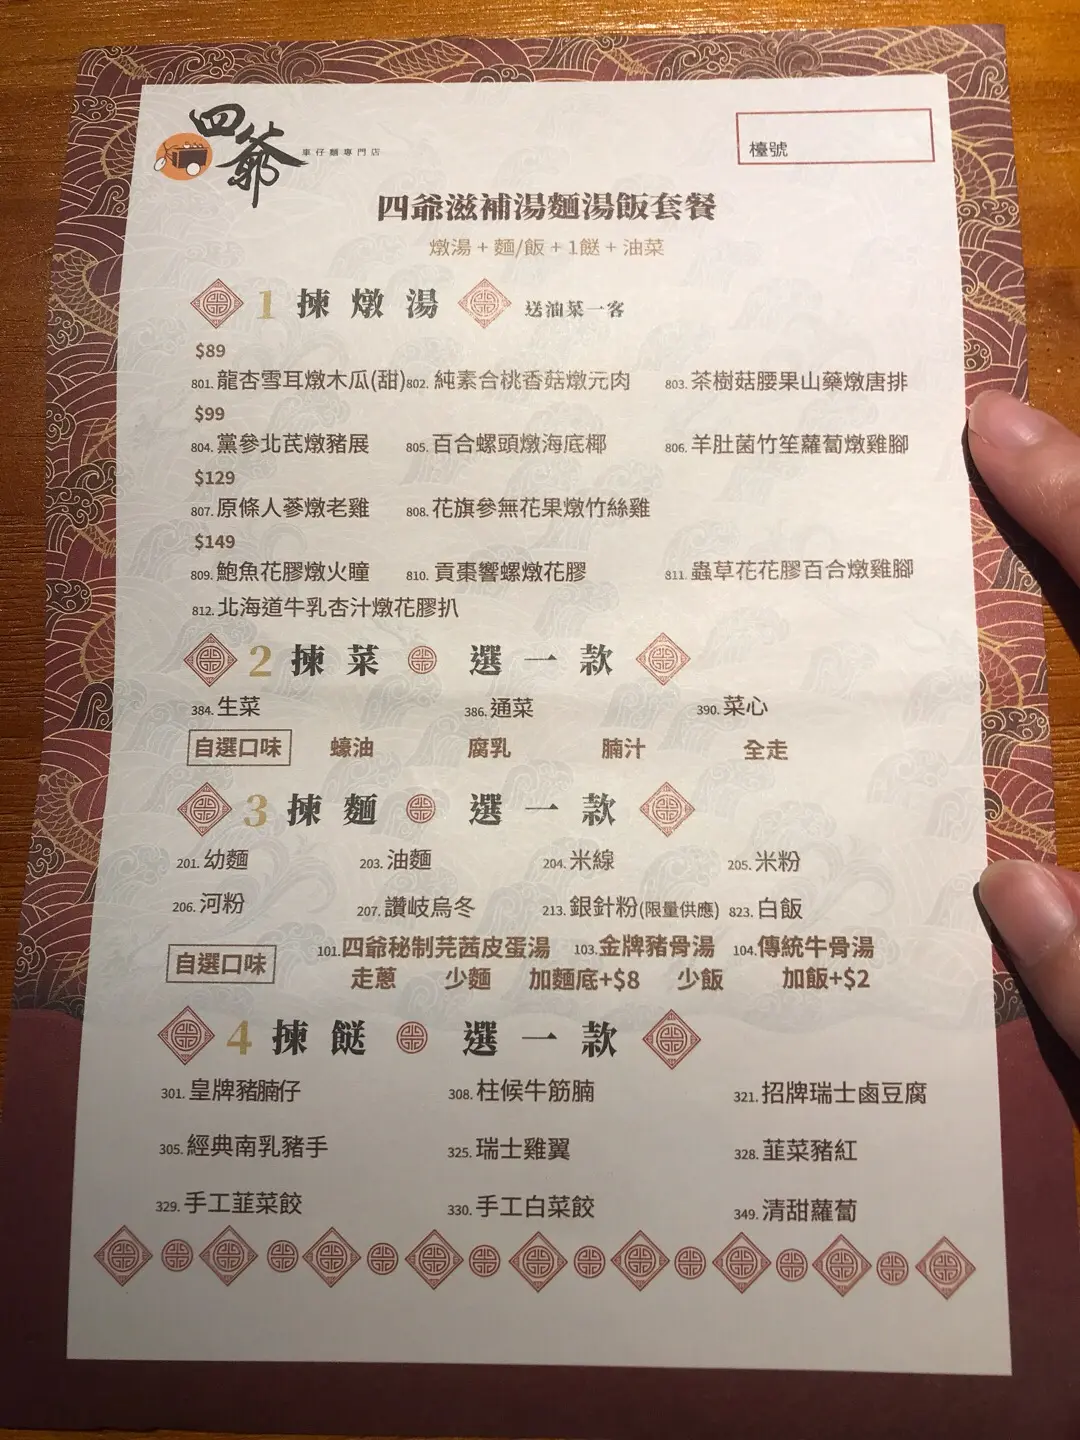 四爺
車仔麵專門店
檯號
四爺滋補湯麵湯飯套餐
燉湯 + 麵/飯 + 1餸 + 油菜
1 揀燉湯 送油菜一客
$89
801. 龍杏雪耳燉木瓜(甜) 802. 純素合桃香菇燉元肉 803. 茶樹菇腰果山藥燉唐排
$99
804. 黨參北芪燉豬展 805. 百合螺頭燉海底椰 806. 羊肚菌竹笙蘿蔔燉雞腳
$129
807. 原條人蔘燉老雞 808. 花旗參無花果燉竹絲雞
$149
809. 鮑魚花膠燉火瞳 810. 貢棗響螺燉花膠 811. 蟲草花花膠百合燉雞腳
812. 北海道牛乳杏汁燉花膠扒
2 揀菜 選一款
384. 生菜 386. 通菜 390. 菜心
自選口味 蠔油 腐乳 腩汁 全走
3 揀麵 選一款
201. 幼麵 203. 油麵 204. 米線 205. 米粉
206. 河粉 207. 讚岐烏冬 213. 銀針粉(限量供應) 823. 白飯
自選口味 101. 四爺秘制芫茜皮蛋湯 103. 金牌豬骨湯 104. 傳統牛骨湯
走蔥 少麵 加麵底+$8 少飯 加飯+$2
4 揀餸 選一款
301. 皇牌豬腩仔 308. 柱候牛筋腩 321. 招牌瑞士鹵豆腐
305. 經典南乳豬手 325. 瑞士雞翼 328. 韮菜豬紅
329. 手工韮菜餃 330. 手工白菜餃 349. 清甜蘿蔔